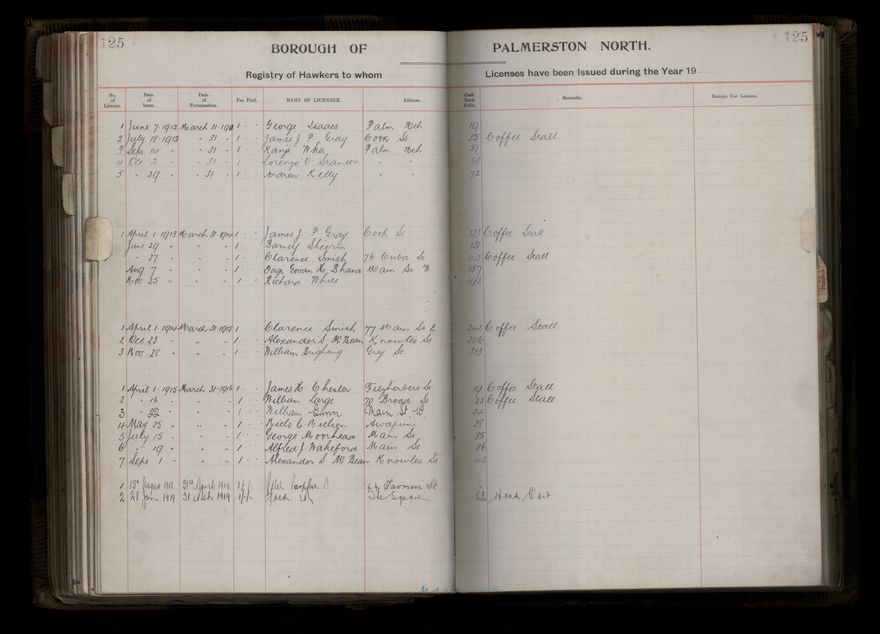 125 125
BOROUGH OF PALMERSTON NORTH.
Registry of Hawkers to whom Licenses have been Issued during the Year 19
No. of License. Date of Issue. Date of Termination. Fee Paid. NAME OF LICENSEE. Address. Cash Book Folio. Remarks. Receipt For License.
1 June 7 · 1912 March 31 · 1913 1 · · George Isaacs Palm Nth 19
2 July 18 · 1912 " 31 " 1 · · James J. P. Gray Cook St 35 Coffee Stall
3 Sept 14 " " 31 " 1 · · Kanji Palm Nth 51
4 Oct 2 " " 31 " 1 · · Lorenzo O. Stanton " " 68
5 " 29 " " 31 " 1 · · Andrew Kelly " " 72
1 April 1 · 1913 March 31 · 1914 1 · · James J. P. Gray Cook St 123 Coffee Stall
June 29 " " " " 1 · · Barney 131
" 27 " " " " 1 · · Clarence Smith 76 Cuba St 145 Coffee Stall
Aug 7 " " " " 1 · · Govan H. Bhana Main St W 157
Nov 25 " " " " 1 · · Richard White
1 April 1 · 1914 March 31 · 1915 1 · · Clarence Smith 77 Main St E 242 Coffee Stall
2 Oct 23 " " " " 1 · · Alexander S. McBean Knowles St 306
3 Nov 28 " " " " 1 · · William Gray St 313
1 April 1 · 1915 March 31 · 1916 1 · · James H. Chester Fitzherbert St 19 Coffee Stall
2 " 16 " " " " 1 · · William Large 70 Broad St 22 Coffee Stall
3 " 22 " " " " 1 William Gunn Main St W. 24
4 May 25 " " " " 1 · · Niels C. Nielson Awapuni 28
5 July 15 " " " " 1 · · George Moorhead Main St 35
6 " 19 " " " " 1 · · Alfred J. Wakeford Main St 36
7 Sept 1 " " " " 1 · · Alexander S. McBean Knowles St 43
1. 15th August 1918 31st March 1919 1/-/- St 2
2. 28 Jan 1919 31 Mch 1919 1/-/- The Square 22 Hand Cart